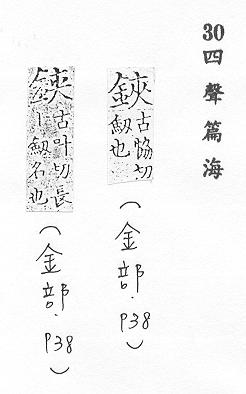 30 四聲篇海
鋏 古恊切 釼也 (金部.P38)
古叶切長丨釼名也 (金部.P38)